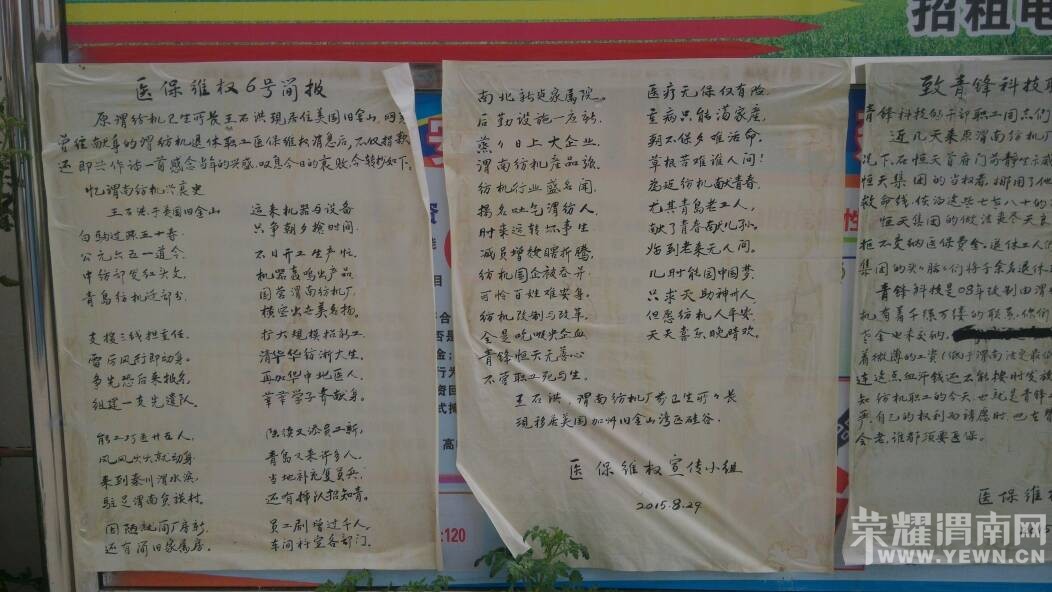 招租电
医保维权6号简报
原渭纺机卫生所长王石洪现居住美国旧金山，
曾经献身的渭纺机退休职工医保维权消息后，不仅捐款
还即兴作诗一首感念当年的兴盛，叹息今日的衰败，今转抄如下。
忆渭南纺机兴衰史
王石洪于美国旧金山
白驹过隙五十春
公元六五一道令
中纺部发红头文
青岛纺机迁部分
支援三线担重任
雷厉风行即动身
争先恐后来报名
组建一支先遣队
能工巧匠廿五人
风风火火就动身
来到秦川渭水滨
驻足渭南负张村
因陋就简厂房新
还有简旧家属房
运来机器与设备
只争朝夕抢时间
不日开工生产忙
机器轰鸣出产品
国营渭南纺机厂
横空出世美名扬
扩大规模招新工
清华华纺浙大生
再加华中北医人
莘莘学子青献身
陆续又添员工新
青岛又来许多人
当地补充复员兵
还有择优招知青
员工剧增过千人
车间科室各部门
南北新老家属院。
后勤设施一应新
蒸蒸日上大企业
渭南纺机产品强
纺机行业盛名闻
扬名吐气渭纺人
时来运转坏事生
减员增效瞎折腾
纺机国企被吞并
可怜百姓难安身
纺机改制与改革
全是吃喝央企血
青锋恒天无善心
不管职工死与生
医疗无保仅有险
重病只能荡家产
朝不保夕难活命
草根苦难谁人问！
老迈纺机献青春
尤其青岛老工人
献了青春献儿孙
临到老来无人问
几时能圆中国梦
只求天助神州人
但愿纺机人平安
天天喜乐晚晴欢
王石洪，渭南纺机厂前卫生所所长
现移居美国加州旧金山湾区硅谷
医保维权宣传小组
2015.8.29
致青锋科技职
青锋科技的干部职工同志们
近几天来原渭南纺机厂
况下，在恒天首府门前静坐示威
恒天集团的当权者，挪用了他
救命钱，使治这些七八十的
恒天集团的做法丧尽天良
拒不交纳医保费金。退休工人们
集团的头脑们将于余名退休
青锋科技是08年改制由渭
机有着千丝万缕的联系。你们
冬金也未交纳。
着微薄的工资（低于渭南法定最低
连这点血汗钱还不能按时发放
知纺机职工的今天，也就是青锋
严自己的权利而请愿时，也在
会老，谁都须要医保。
医保维权
:120
荣耀渭南网
WWW.YEWN.CN